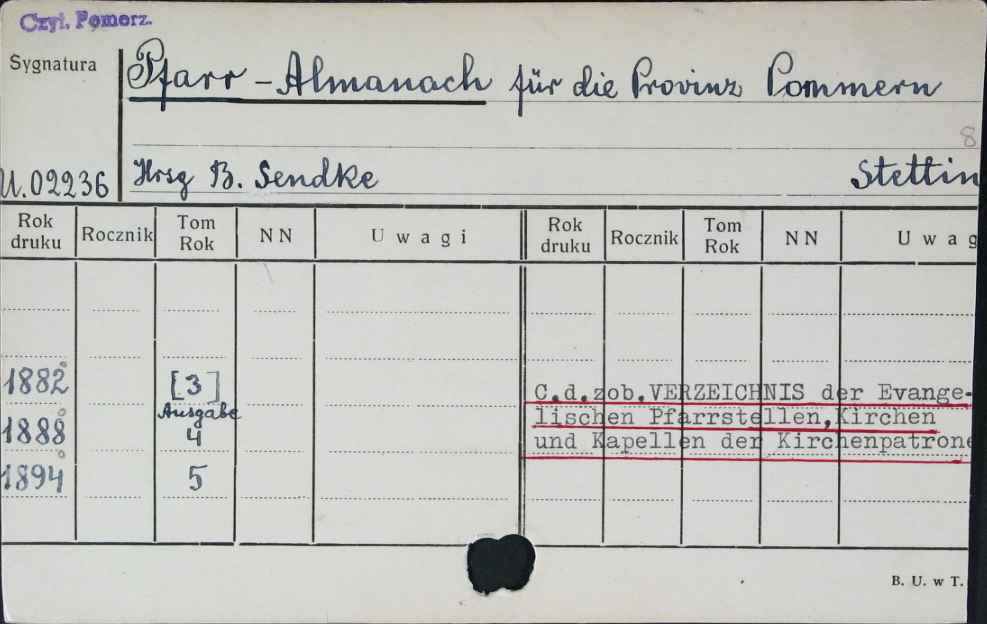 Czyt. Pomorz.
Sygnatura
Pfarr - Almanach für die Provinz Pommern
8
U.02236
Hrsg B. Sendke
Stettin
Rok druku Rocznik Tom Rok NN Uwagi Rok druku Rocznik Tom Rok NN Uwag
1882 [3]
Ausgabe
1888 4
1894 5
C.d.zob.VERZEICHNIS der Evange-
lischen Pfarrstellen,Kirchen
und Kapellen der Kirchenpatrone
B. U. w T.